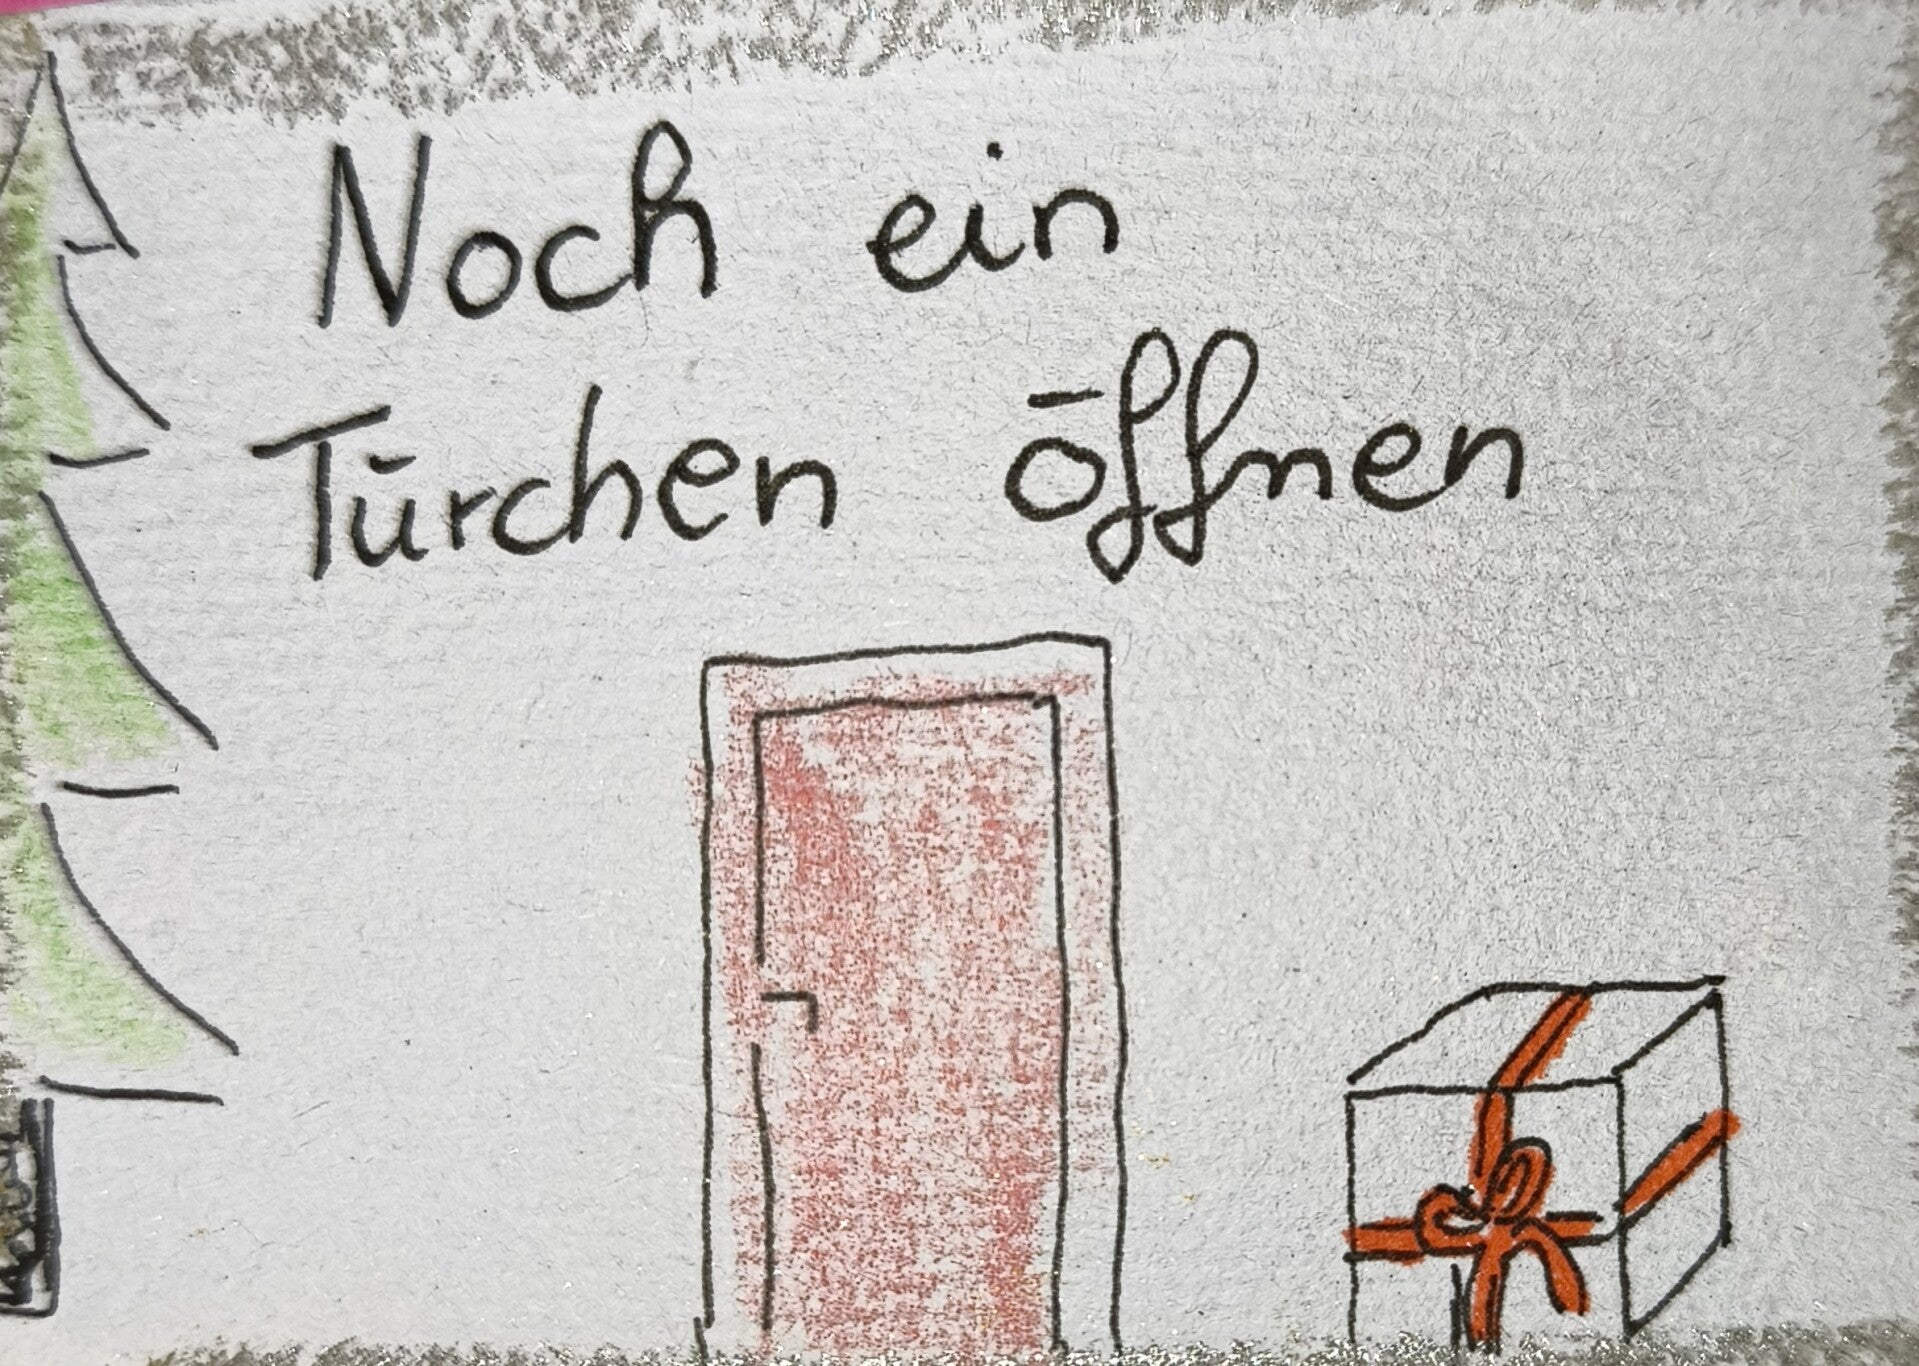 Noch ein
Türchen öffnen